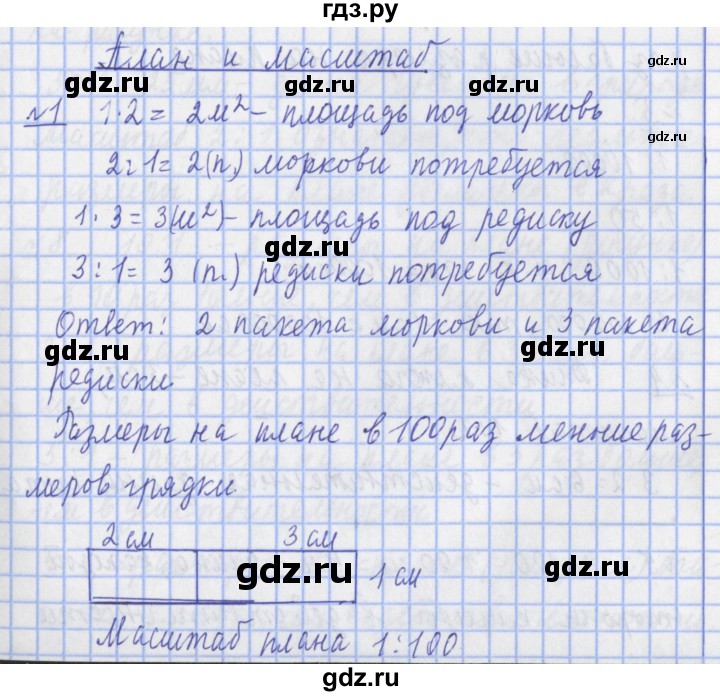 гдз.ру
План и масштаб
gdz.ru
gdz.ru
№1 1·2 = 2м² - площадь под морковь
gdz.ru
2:1 = 2(п.) моркови потребуется
1·3 = 3(м²) - площадь под редиску
gdz.ru
3:1 = 3 (п.) редиски потребуется
Ответ: 2 пакета моркови и 3 пакета
gdz.ru
gdz.ru
редиски
Размеры на плане в 100 раз меньше раз-
меров грядки
2 см 3 см
gdz.ru
gdz.ru
1 см
Масштаб плана 1:100
gdz.ru